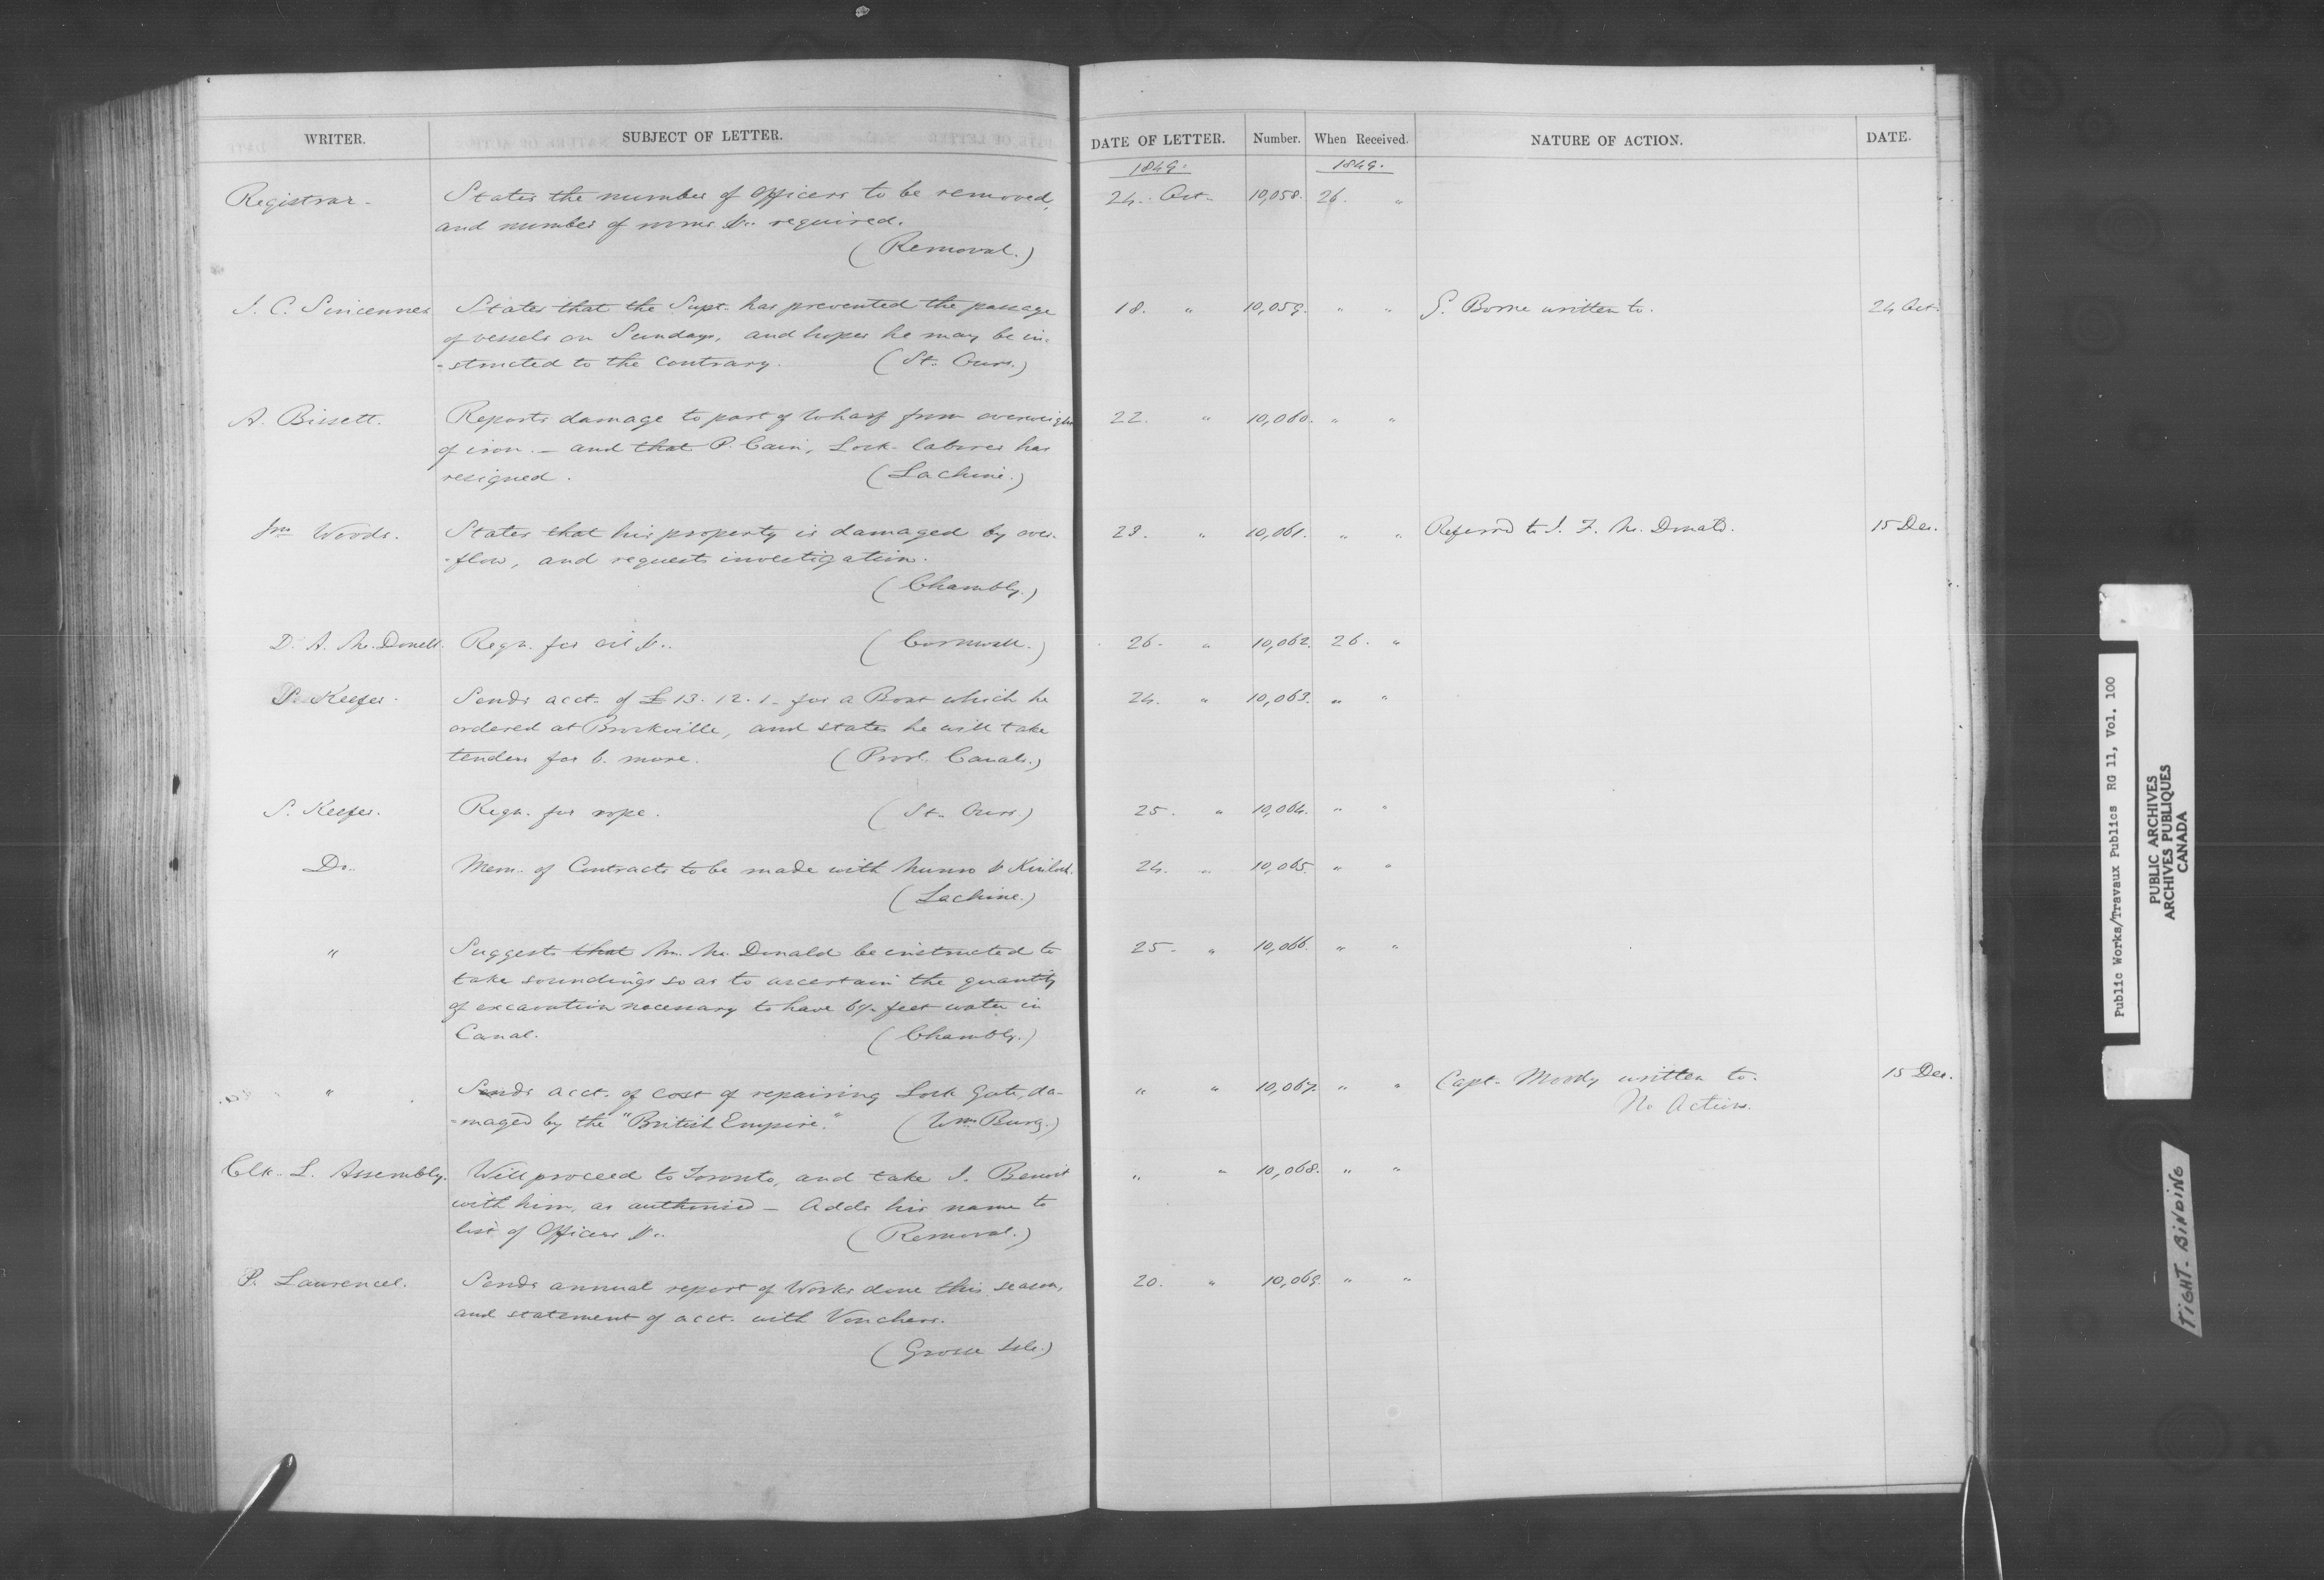 WRITER. SUBJECT OF LETTER. DATE OF LETTER. Number. When Received. NATURE OF ACTION. DATE.
1849. 1849.
Registrar. States the number of Officers to be removed, 24. Oct. 10,058. 26. "
and number of rooms &c. required.
(Removal.)
J. C. Sincennes States that the Supt. has prevented the passage 18. " 10,059. " " G. Borne written to. 24 Oct.
of vessels on Sundays, and hopes he may be in-
-structed to the contrary. (St. Ours.)
A. Bissett. Reports damage to part of Wharf from overweight 22. " 10,060. " "
of iron. – and that P. Cain, Lock-laborer has
resigned. (Lachine.)
Jno. Woods. States that his property is damaged by over- 23. " 10,061. " " Referred to J. F. Mc. Donald. 15 Dec.
-flow, and requests investigation.
(Chambly.)
D. A. Mc. Donell. Reqn. for oil &c. (Cornwall.) 26. " 10,062. 26. "
P. Keefer. Sends acct. of £13. 12. 1. for a Boat which he 24. " 10,063. " "
ordered at Brockville, and states he will take
tenders for 6. more. (Provl. Canals.)
S. Keefer. Reqn. for rope. (St. Ours.) 25. " 10,064. " "
Do. Mem. of Contracts to be made with Munro & Kinloch. 24. " 10,065. " "
(Lachine.)
" Suggests that Mr. Mc. Donald be instructed to 25. " 10,066. " "
take soundings so as to ascertain the quantity
of excavation necessary to have 6½ feet water in
Canal. (Chambly.)
" Sends acct. of cost of repairing Lock Gate, da- " " 10,067. " " Capt. Moody written to. 15 Dec.
-maged by the "British Empire." (Wm. Burg.) No Action.
Clk. L. Assembly. Will proceed to Toronto, and take J. Benoit " " 10,068. " "
with him, as authorised – Adds his name to
list of Officers &c. (Removal.)
P. Laurencel. Sends annual report of Works done this season, 20. " 10,069. " "
and statement of acct. with Vouchers.
(Grosse Isle.)
Public Works/Travaux Publics RG 11, Vol. 100
PUBLIC ARCHIVES
ARCHIVES PUBLIQUES
CANADA
TIGHT. BINDING